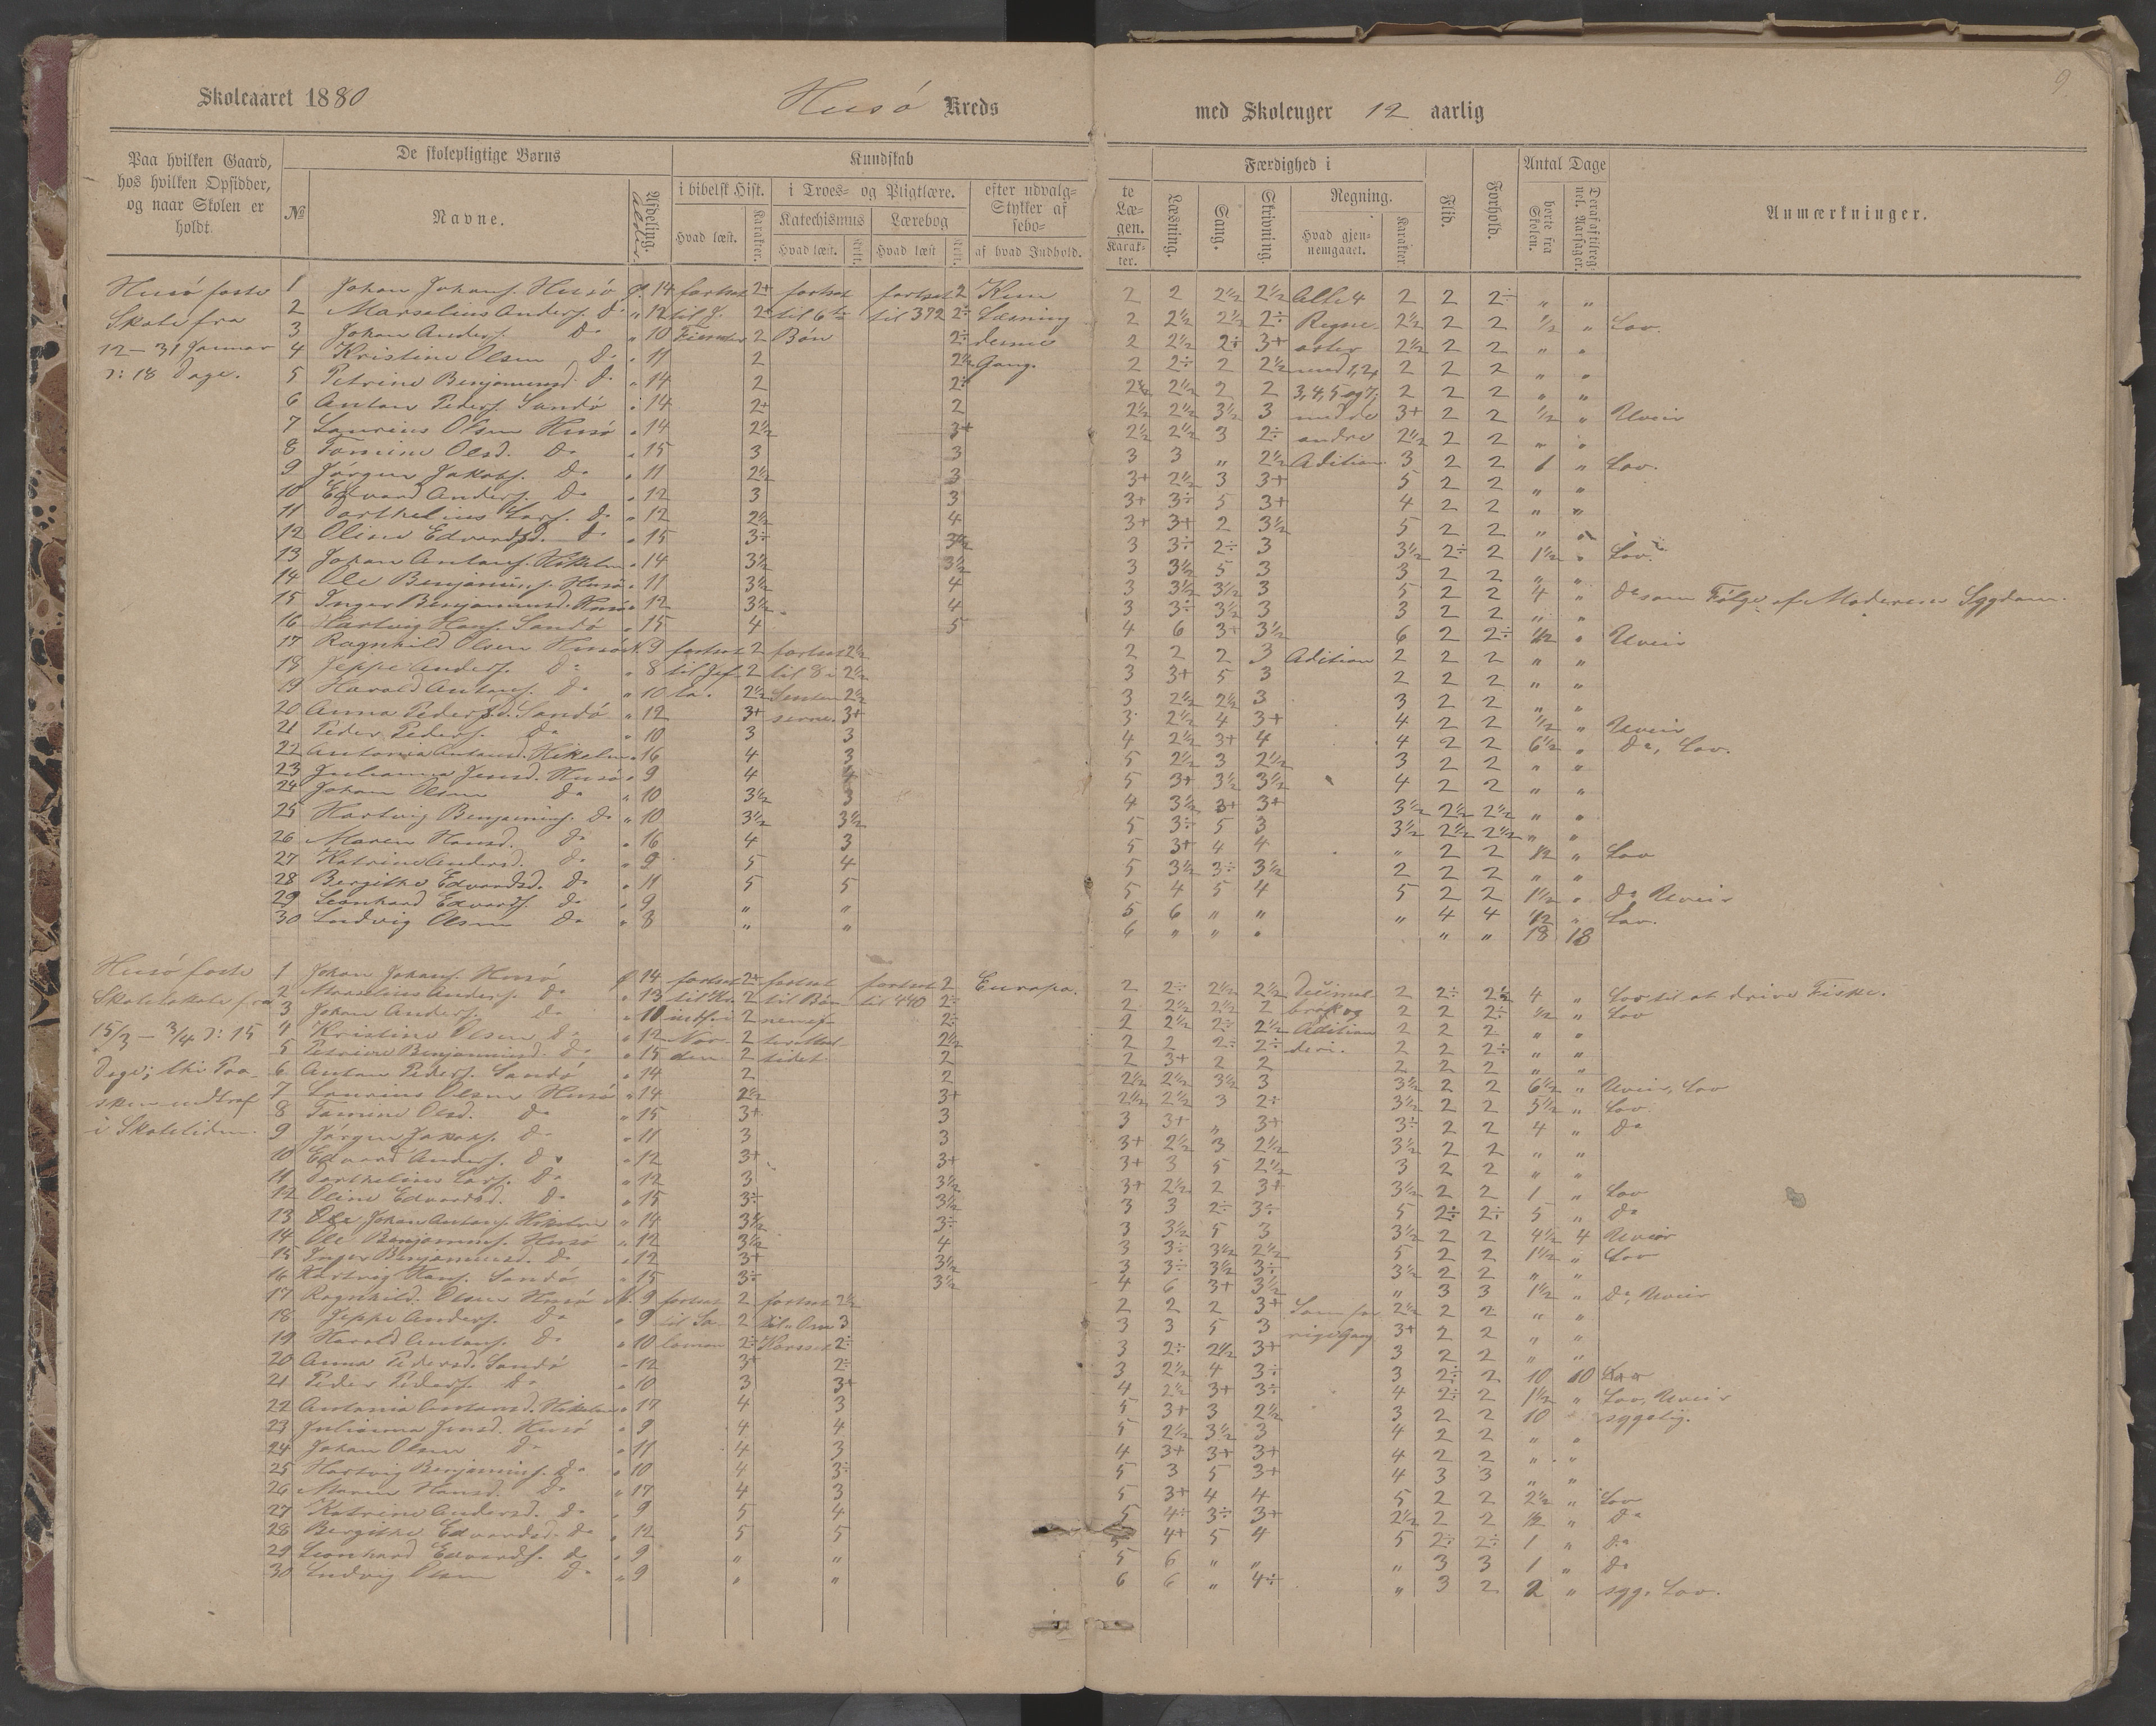 9
Skoleaaret 1880 Husø Kreds med Skoleuger 12 aarlig
Paa hvilken Gaard, hos hvilken Opsidder, og naar Skolen er holdt.
De skolepligtige Børns
№ Navne. Afdeling. Alder.
Kundskab
i bibelsk Hist. Hvad læst. Karakter.
i Troes- og Pligtlære.
Katechismus Hvad læst. Lærebog Hvad læst
efter udvalg- te
Stykker af Læ-
sebo- gen.
af hvad Indhold. Karak- ter.
Færdighed i
Læsning. Sang. Skrivning. Regning. Hvad gjen- nemgaaet. Karakter.
Flid. Forhold.
Antal Dage
borte fra Skolen. Deraf af tilreg- nel. Aarsager.
Anmærkninger.
Husø faste
Skole fra
12-31 Januar
ɔ: 18 Dage.
1 Johan Johans. Husø 14 fortsat 2+ fortsat fortsat 2 2 2 2½ 2½ Alle 4 2 2 2÷ „ „
2 Marselius Anders. Do „ 12 til til 372 2÷ Læsning 2 2½ 2½ 2÷ Regne- 2½ 2 2 ½ „ Lov.
3 Johan Anders. Do „ 10 2 Bøn 2÷ denne 2 2½ 2÷ 3+ arter 2½ 2 2 „ „
4 Kristine Olsen Do „ 11 2 2½ Gang. 2 2÷ 2 2½ 2 2 2 „ „
5 Petrine Benjaminsd. Do „ 14 2 2÷ 2½ 2½ 2 2 3, 4, 5 og 2 2 2 „ „
6 Anton Peders. Sandø „ 14 2+ 2 2½ 2½ 3½ 3 med de 3+ 2 2 ½ „ Uveir
7 Laurius Olsen Husø „ 14 2½ 3+ 2½ 2½ 3 2÷ andre 2½ 2 2 „ „
8 Tomine Olsd. Do „ 15 3 3 3 3 „ 2½ Adition 3 2 2 1 „ Lov.
9 Jørgen Jakobs. Do „ 11 2½ 3 3+ 2½ 3 3+ 5 2 2 „ „
10 Edvard Anders. Do „ 12 3 3 3+ 3÷ 5 3+ 4 2 2 „ „
11 Parthelius Lars. Do „ 12 2½ 4 3+ 3+ 2 3½ 5 2 2 „ „
12 Oline Edvardsd. Do „ 15 3÷ 3½ 3 3÷ 2÷ 3 3½ 2÷ 2 1½ „ Lov.
13 Johan Antons. „ 14 3½ 3½ 3 3½ 5 3 3 2 2 „ „
14 Ole Benjamins. Husø „ 11 3½ 4 3 3½ 3½ 3 5 2 2 4 „ Do som Følge af Moderens Sygdom.
15 Inger Benjaminsd. Husø „ 12 3½ 4 3 3÷ 3½ 3 3 2 2 „ „
16 Hartvig Hans. Sandø „ 15 4 5 4 6 3+ 3½ 6 2 2÷ ½ „ Uveir
17 Ragnhild Olsen Husø 9 fortsat 2 fortsat 2½ 2 2 2 3 Adition 2 2 2 „ „
18 Jeppe Anders. Do „ 8 til Jef- 2 til 8 i 2½ 3 3+ 5 3 2 2 2 „ „
19 Harald Antons. Do „ 10 ta. 2½ 2½ 3 2½ 2½ 3 3 2 2 „ „
20 Anna Pedersd. Sandø „ 12 3+ serne. 3+ 3 2½ 4 3+ 4 2 2 ½ „ Uveir
21 Peder Peders. Do „ 10 3 3 4 2½ 3+ 4 4 2 2 6½ „ Do, Lov.
22 Antonia Antonsd. „ 16 4 3 5 2½ 3 2½ 3 2 2 „ „
23 Julianna Jensd. Husø „ 9 4 4 5 3+ 3½ 3½ 4 2 2 „ „
24 Johan Olsen Do „ 10 3½ 3 4 3½ 3+ 3+ 3½ 2½ 2½ „ „
25 Hartvig Benjamins. Do „ 10 3½ 3½ 5 3÷ 5 3 3½ 2½ 2½ „ „
26 Maren Hansd. Do „ 16 4 3 5 3+ 4 4 „ 2 2 ½ „ Lov
27 Katrine Andersd. Do „ 9 5 4 5 3½ 3÷ 3½ 2 2 2 „ „
28 Bergithe Edvardsd. Do „ 11 5 5 5 4 5 4 5 2 2 1½ „ Do Uveir
29 Leonhard Edvards. Do „ 9 „ „ 5 6 „ „ „ 4 4 ½ „ Lov.
30 Ludvig Olsen Do „ 8 „ „ 6 „ „ „ „ „ 18 18
Husø faste
Skole fra
15/3 - 3/4 ɔ: 15
Dage; thi Paa-
sken indtraf
i Skoletiden.
1 Johan Johans. Husø 14 fortsat 2+ fortsat fortsat 2 Europa. 2 2÷ 2½ 2½ Decimal- 2 2÷ 2½ 4 „ Lov til at drive Fiske.
2 Marselius Anders. Do „ 13 2 til Bøn til 440 2÷ 2 2½ 2½ 2 brøk og 2 2 2÷ ½ „ Lov
3 Johan Anders. Do „ 10 2 2÷ 2 2½ 2÷ 2½ Adition 2 2 2 „ „
4 Kristine Olsen Do „ 12 2 2½ 2 2 2÷ 2÷ deri. 2 2 2÷ „ „
5 Petrine Benjaminsd. Do „ 15 den 2 2 2 3+ 2 2 2 2 2 „ „
6 Anton Peders. Sandø „ 14 2 2 2½ 2½ 3½ 3 3½ 2 2 6½ „ Uveir, Lov
7 Laurius Olsen Husø „ 14 2½ 3+ 2½ 2½ 3 2÷ 3½ 2 2 5½ „ Lov.
8 Tomine Olsd. Do „ 15 3+ 3 3 3+ „ 3+ 3÷ 2 2 4 „ Do
9 Jørgen Jakobs. Do „ 11 3 3 3+ 2½ 3 2½ 3½ 2 2 „ „
10 Edvard Anders. Do „ 12 3+ 3+ 3+ 3 5 2½ 3 2 2 „ „
11 Parthelius Lars. Do „ 12 3 3½ 3+ 2½ 2 3+ 3½ 2 2 1 „ Lov
12 Oline Edvardsd. Do „ 15 3÷ 3½ 3 3 2÷ 3÷ 5 2÷ 2÷ 5 „ Do
13 Johan Antons. „ 14 3½ 3÷ 3 3½ 5 3 3½ 2 2 4½ 4 Uveir
14 Ole Benjamins. Husø „ 12 3½ 4 3 3÷ 3½ 2½ 5 2 2 1½ „ Lov
15 Inger Benjaminsd. Do „ 12 3+ 3½ 3 3÷ 3½ 3÷ 3½ 2 2 „ „
16 Hartvig Hans. Sandø „ 15 3÷ 3½ 4 6 3+ 3½ „ 3 3 1½ „ Do, Uveir
17 Ragnhild Olsen Husø 9 fortsat 2 fortsat 2½ 2 2 2 3+ Som for 2½ 2 2 „ „
18 Jeppe Anders. Do „ 9 til Sa- 2 til 3 3 3 5 3 rige Gang 3+ 2 2 „ „
19 Harald Antons. Do „ 10 lomon 2÷ Korsset 2÷ 3 2÷ 2½ 3+ 3 2 2 „ „
20 Anna Pedersd. Sandø „ 12 3+ 2÷ 3 2½ 4 3÷ 3 2÷ 2 10 10
21 Peder Peders. Do „ 10 3 3+ 4 2½ 3+ 3÷ 4 2÷ 2 1½ „ Lov, Uveir
22 Antonia Antonsd. „ 17 4 3 5 3+ 3 2½ 3 2 2 10 sygelig.
23 Julianna Jensd. Husø „ 9 4 4 5 2½ 3½ 3 4 2 2 „ „
24 Johan Olsen Do „ 11 4 3 4 3+ 3+ 3+ 4 2 2 „ „
25 Hartvig Benjamins. Do „ 10 4 3÷ 5 3 5 3+ 4 3 3 „ „
26 Maren Hansd. Do „ 17 4 3 5 3+ 4 4 5 2 2 2½ „ Lov
27 Katrine Andersd. Do „ 9 5 4 5 4÷ 3÷ 3+ 2½ 2 2 ½ „ Do
28 Bergithe Edvardsd. Do „ 12 5 5 5 4+ 5 4 5 2÷ 2÷ 1 „ Do
29 Leonhard Edvards. Do „ 9 „ „ 5 6 „ „ „ 3 3 1 „ Do
30 Ludvig Olsen Do „ 9 „ „ 6 6 „ 4÷ „ 3 2 2 „ syg, Lov.